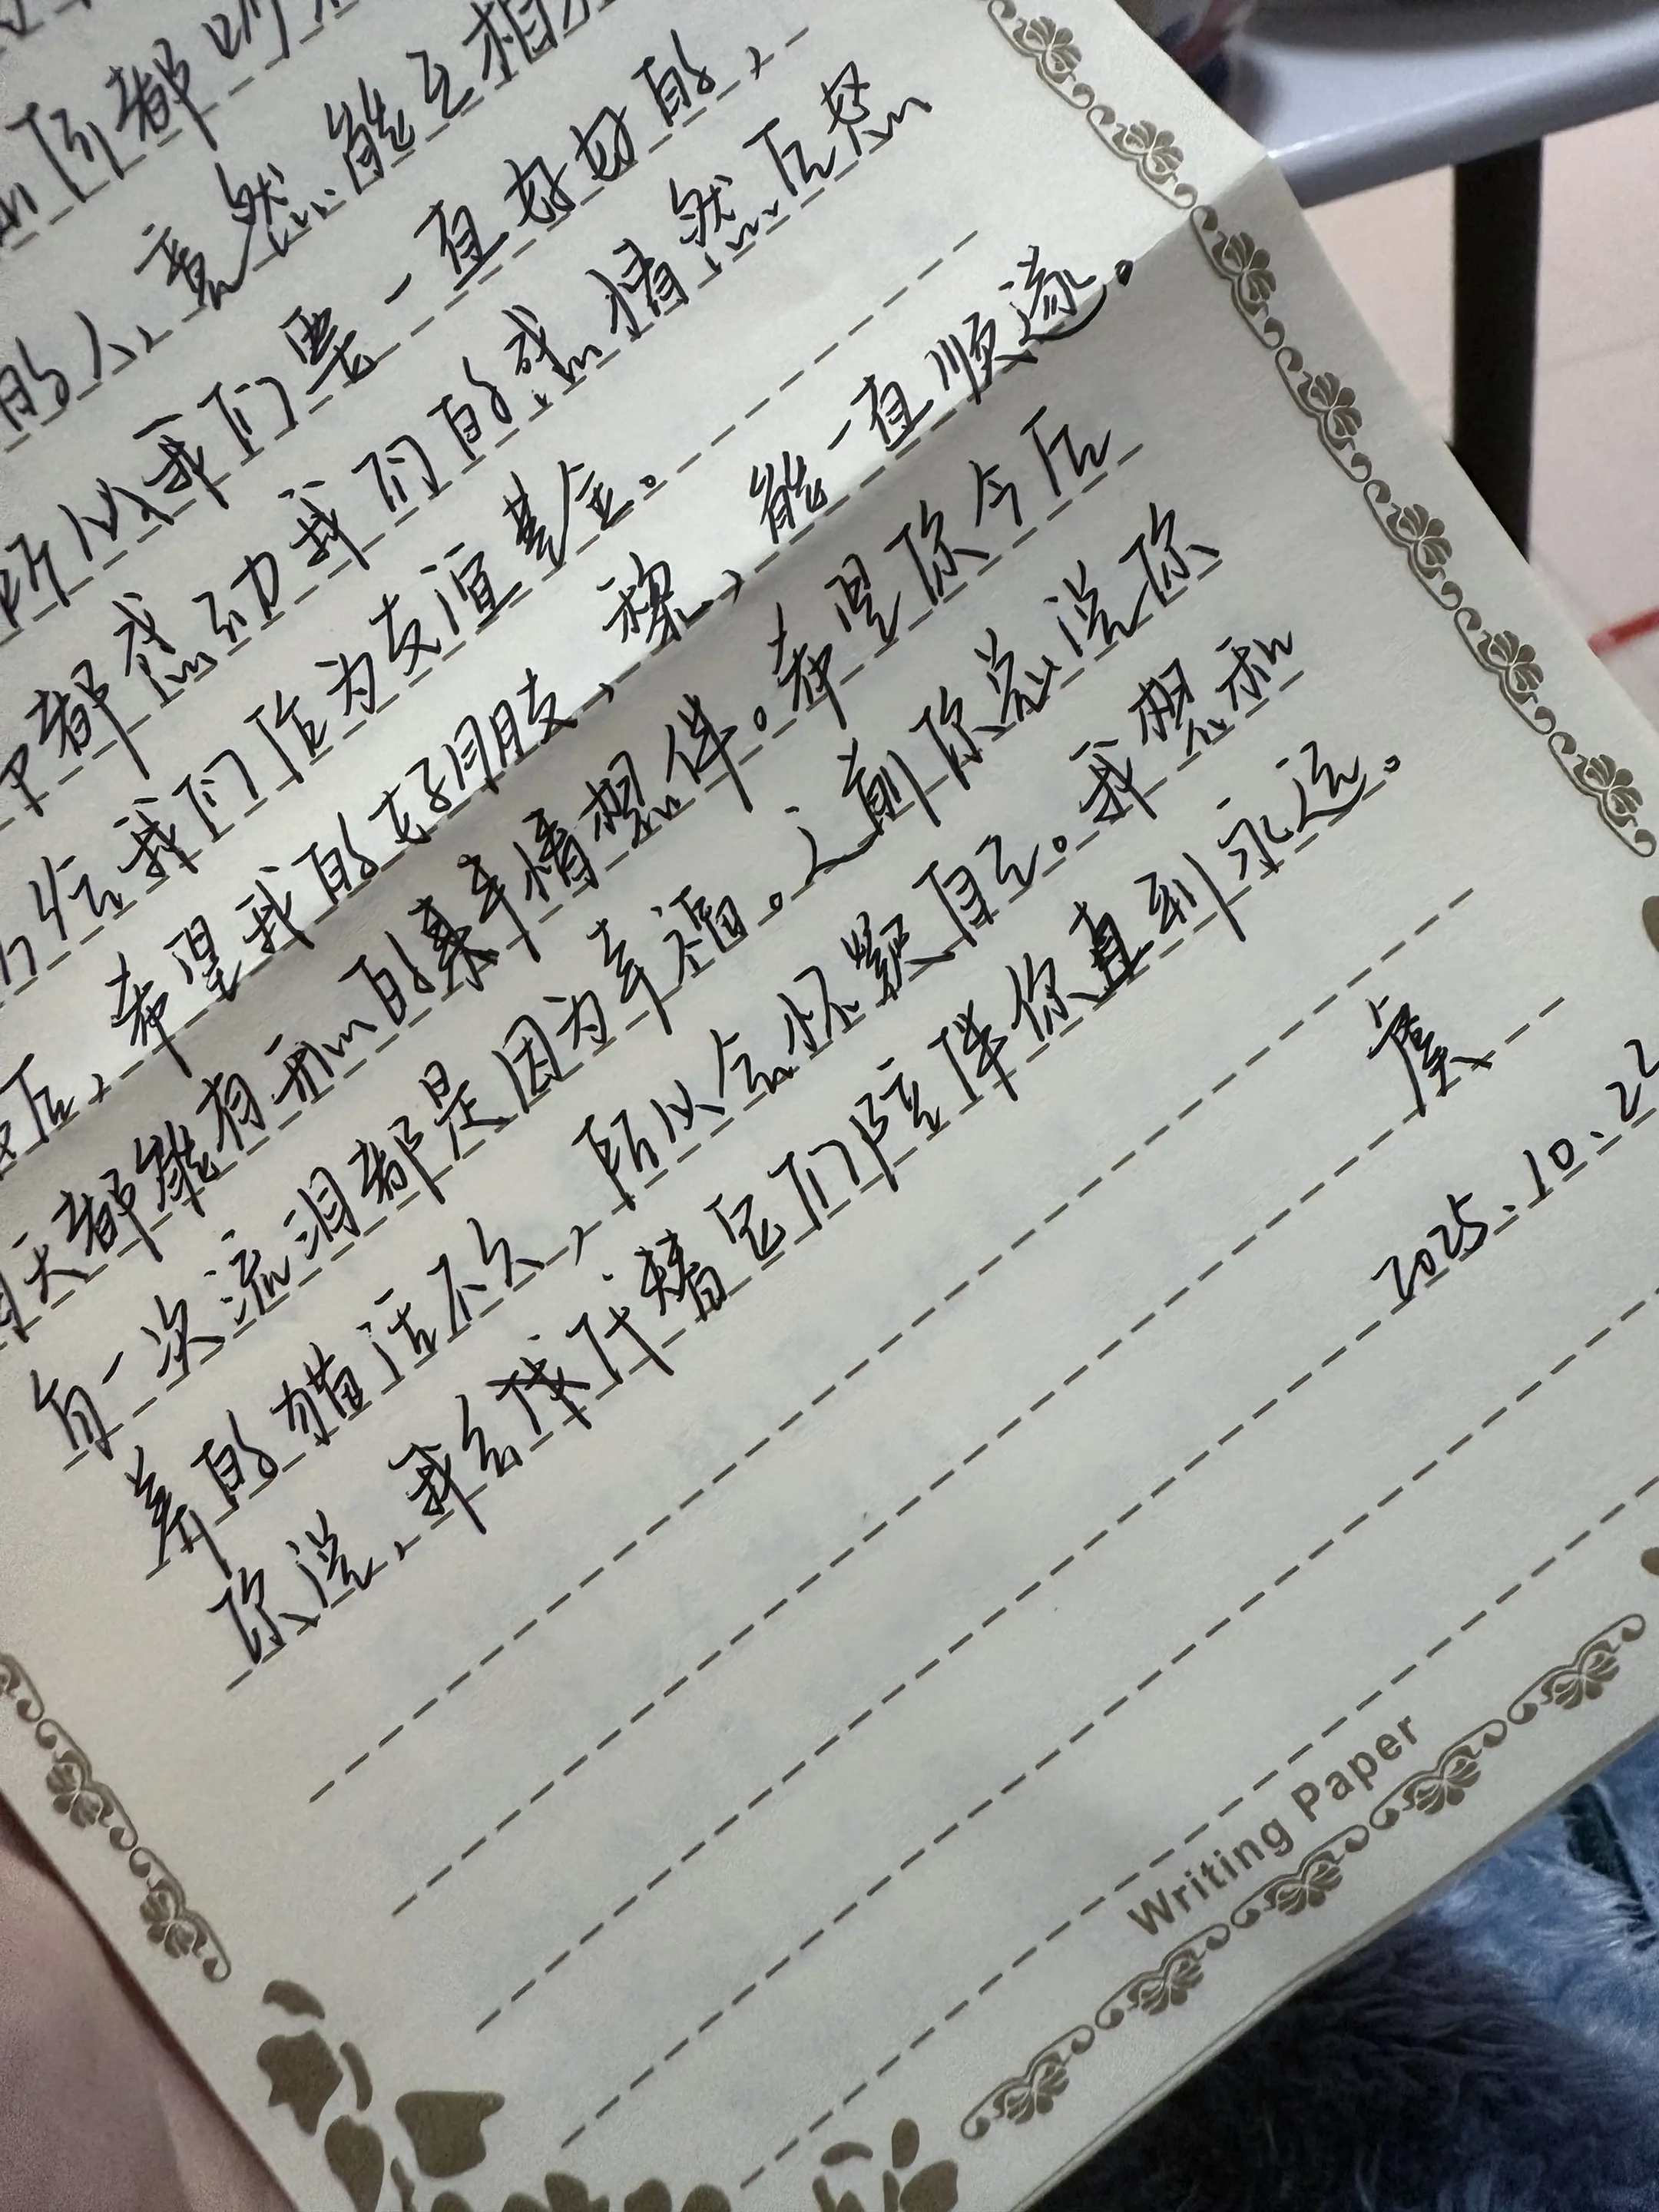 都吵
的人,竟然能互相
所以我们要一直好好的,
都感动我们的感情然后怒
给我们作为友谊基金。
最后,希望我的好朋友,穆,能一直顺遂。
每天都能有开心的事情想伴。希望你今后
每一次流泪都是因为幸福。之前你总说你
养的猫活不久,所以会怀疑自己。我想和
你说,我会代替它们陪伴你直到永远。
虞
2025.10.22
Writing Paper